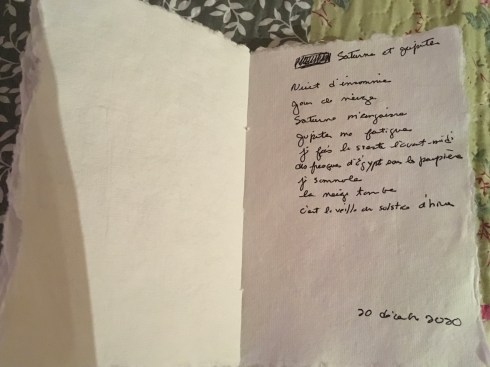 Saturne et Jupiter
Nuit d'insomnie
jour de neige
Saturne m'angoisse
Jupiter me fatigue
je fais la sieste l'avant-midi
des fresques d'égypte sous les paupières
je somnole
la neige tombe
c'est la veille du solstice d'hiver
20 décembre 2020